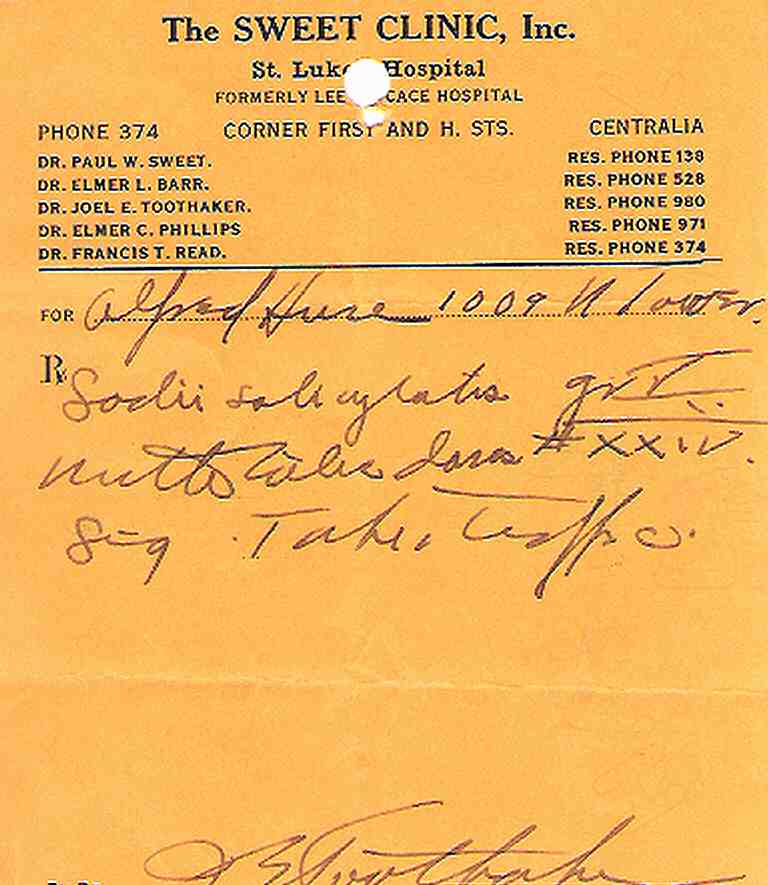 The SWEET CLINIC, Inc.
St. Luke Hospital
FORMERLY LEE CACE HOSPITAL
PHONE 374 CORNER FIRST AND H. STS. CENTRALIA
DR. PAUL W. SWEET. RES. PHONE 138
DR. ELMER L. BARR. RES. PHONE 528
DR. JOEL E. TOOTHAKER. RES. PHONE 980
DR. ELMER C. PHILLIPS RES. PHONE 971
DR. FRANCIS T. READ. RES. PHONE 374
FOR Alfred 1009 N Tower.
Rx
Sodii salicylatis gr V
Mitte tales doses # XXIV.
Sig Take
JE Toothaker